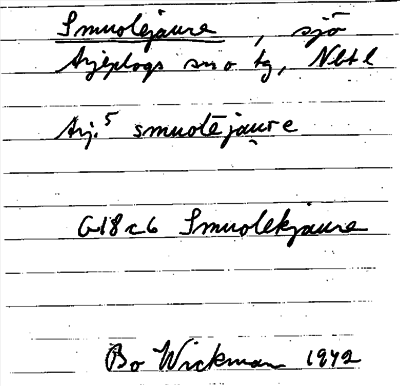 Smuolējaure, sjö
Arjeplogs sn o tg, Nbtl
Arj.⁵ smuotējau̯re
G18 c6 Smuolekjaure
Bo Wickman 1942